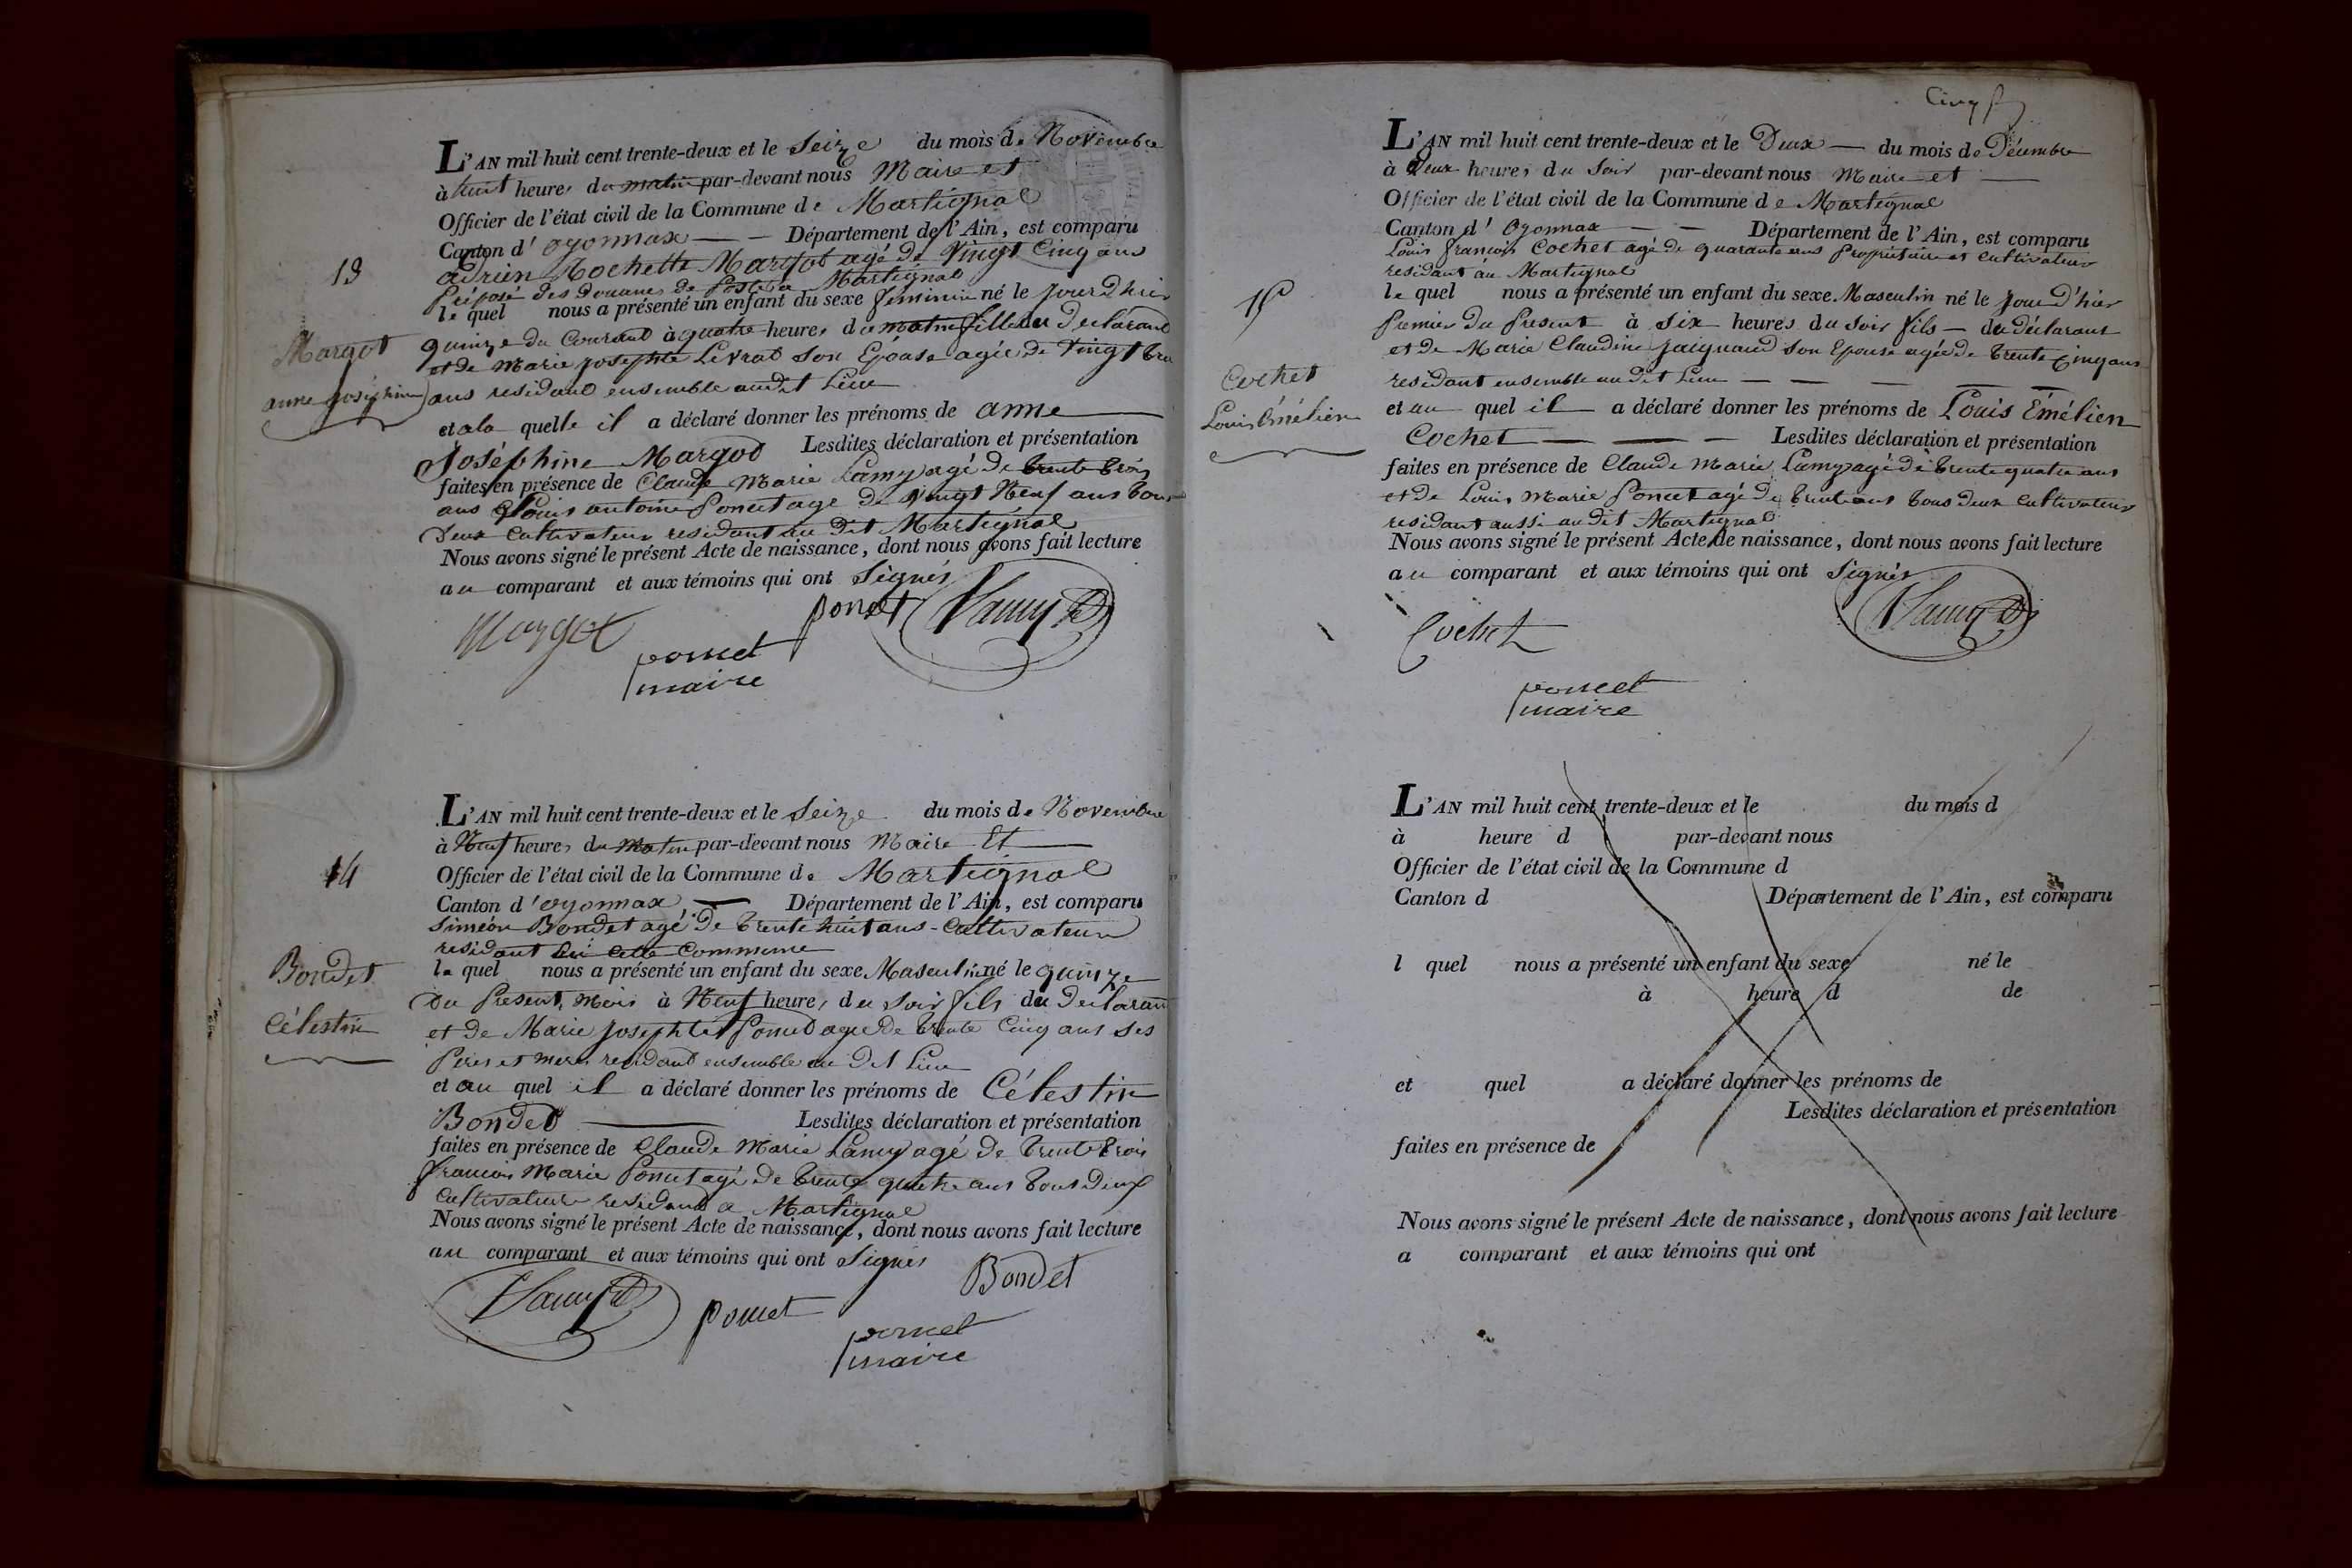 L'AN mil huit cent trente-deux et le Seize du mois de Novembre
à huit heures du matin par-devant nous Maire et
Officier de l'état civil de la Commune de Martignat
Canton d'oyonnax — — Département de l'Ain, est comparu
13
adrien Rochette Margot agé de Vingt Cinq ans
Préposé des Douanes de Poste a Martignat
le quel nous a présenté un enfant du sexe feminin né le jour D'hier
Margot
quinze du Courant à quatre heures du matin fille du Déclarant
et de Marie josephte Levrat son Epouse agée de Vingt
anne joséphine
ans residant ensemble audit Lieu
et a la quelle il a déclaré donner les prénoms de anne
Joséphine Margot Lesdites déclaration et présentation
faites en présence de Claude Marie Lamy agé de trente trois
ans & Louis antoine Poncet age de vingt Neuf ans tous
Deux Cultivateurs residant au Dit Martignat
Nous avons signé le présent Acte de naissance, dont nous avons fait lecture
au comparant et aux témoins qui ont Signés
Margot
poncet
Lamy
poncet
maire
L'AN mil huit cent trente-deux et le Seize du mois de Novembre
à Neuf heures du Matin par-devant nous Maire Et
14
Officier de l'état civil de la Commune de Martignat
Canton d'oyonnax — Département de l'Ain, est comparu
Siméon Bondet agé de trente huit ans - Cultivateur
residant en cette Commune
Bondet
le quel nous a présenté un enfant du sexe Masculin né le quinze
Du Present Mois à Neuf heures du soir fils du Déclarant
Célestin
et de Marie josephte Poncet agée de trente Cinq ans ses
Peres et meres residant ensemble au dit Lieu
et au quel il a déclaré donner les prénoms de Célestin
Bondet Lesdites déclaration et présentation
faites en présence de Claude Marie Lamy agé de trente trois
francois Marie Poncet agé de trente quatre ans tous Deux
Cultivateurs residant a Martignat
Nous avons signé le présent Acte de naissance, dont nous avons fait lecture
au comparant et aux témoins qui ont Signés
Lamy
poncet
Bondet
poncet
maire
Cinq
L'AN mil huit cent trente-deux et le Deux — du mois de Décembre
à Deux heures du Soir par-devant nous Maire et —
Officier de l'état civil de la Commune de Martignat
Canton d'Oyonnax — — Département de l'Ain, est comparu
Louis françois Cochet agé de quarante ans Propriétaire et Cultivateur
residant au Martignat
15
le quel nous a présenté un enfant du sexe Masculin né le jour D'hier
Premier du Present à six heures du soir fils — du déclarant
et de Marie Claudine jaiguaud son Epouse agée de trente Cinq ans
Cochet
residant ensemble au dit Lieu — — — — —
Louis Émélien
et au quel il a déclaré donner les prénoms de Louis Émélien
Cochet — — — Lesdites déclaration et présentation
faites en présence de Claude Marie Lamy agé de trente quatre ans
et de Louis Marie Poncet agé de trente ans tous deux Cultivateurs
residant aussi au Dit Martignat
Nous avons signé le présent Acte de naissance, dont nous avons fait lecture
au comparant et aux témoins qui ont Signés
Cochet
Lamy
poncet
maire
L'AN mil huit cent trente-deux et le du mois d
à heure d par-devant nous
Officier de l'état civil de la Commune d
Canton d Département de l'Ain, est comparu
l quel nous a présenté un enfant du sexe né le
à heure d de
et quel a déclaré donner les prénoms de
Lesdites déclaration et présentation
faites en présence de
Nous avons signé le présent Acte de naissance, dont nous avons fait lecture
a comparant et aux témoins qui ont